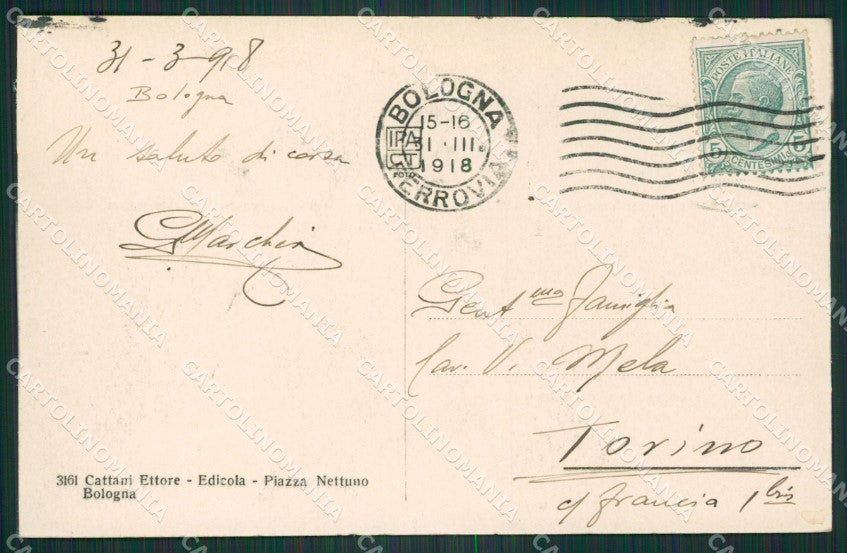 31-3-918
Bologna
Un saluto di corsa
GMarchi
BOLOGNA
15-16
31 · III.
1918
FERROVIA
POSTE ITALIANE
5 5
CENTESIMI
Gent ma Famiglia
Cav. V. Mela
Torino
c/ Francia 1 bis
3161 Cattani Ettore - Edicola - Piazza Nettuno
Bologna
CARTOLINOMANIA